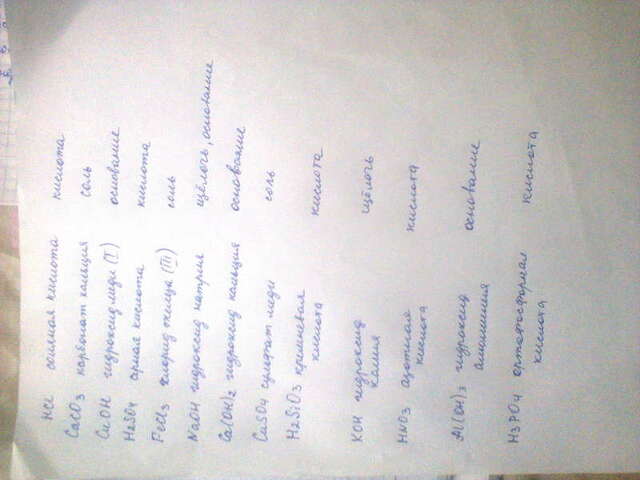 HCl соляная кислота кислота
CaCO3 карбонат кальция соль
CuOH гидроксид меди (I) основание
H2SO4 серная кислота кислота
FeCl3 хлорид железа (III) соль
NaOH гидроксид натрия щёлочь, основание
Ca(OH)2 гидроксид кальция основание
CuSO4 сульфат меди соль
H2SiO3 кремневая кислота
кислота
KOH гидроксид щёлочь
калия
HNO3 азотная кислота
кислота
Al(OH)3 гидроксид основание
алюминия
H3PO4 ортофосформая кислота
кислота